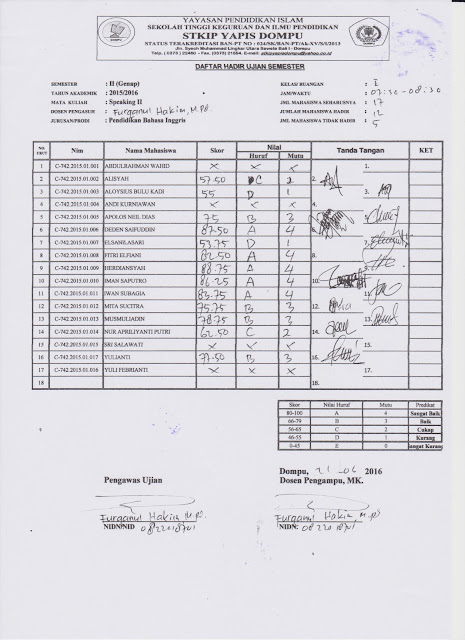 YAYASAN PENDIDIKAN ISLAM
SEKOLAH TINGGI KEGURUAN DAN ILMU PENDIDIKAN
STKIP YAPIS DOMPU
STATUS TERAKREDITASI BAN-PT NO : 024/SK/BAN-PT/Ak-XV/S/I/2013
Jln. Syech Muhammad Lingkar Utara Sawete Bali I - Dompu
DAFTAR HADIR UJIAN SEMESTER
SEMESTER : II (Genap) KELAS/RUANGAN : I
TAHUN AKADEMIK : 2015/2016 JAM/WAKTU : 07:30-08:30
MATA KULIAH : Speaking II JML MAHASISWA SEHARUSNYA : 17
DOSEN PENGASUH : Furqanul Hakim, M.Pd. JUMLAH MAHASISWA HADIR : 12
JURUSAN/PRODI : Pendidikan Bahasa Inggris JML MAHASISWA TIDAK HADIR : 5
NO URUT Nim Nama Mahasiswa Skor Nilai Huruf Mutu Tanda Tangan KET
1 C-742.2015.01.001 ABDULRAHMAN WAHID X X X 1.
2 C-742.2015.01.002 ALISYAH 57.50 C 2 2.
3 C-742.2015.01.003 ALOYSIUS BULU KADI 55 D 1 3.
4 C-742.2015.01.004 ANDI KURNIAWAN X X X 4.
5 C-742.2015.01.005 APOLOS NEIL DIAS 75 B 3 5.
6 C-742.2015.01.006 DEDEN SAIFUDDIN 87.50 A 4 6.
7 C-742.2015.01.007 ELSANILASARI 53.75 D 1 7.
8 C-742.2015.01.008 FITRI ELFIANI 82.50 A 4 8.
9 C-742.2015.01.009 HERDIANSYAH 88.75 A 4 9.
10 C-742.2015.01.010 IMAN SAPUTRO 86.25 A 4 10.
11 C-742.2015.01.011 IWAN SUBAGIA 83.75 A 4 11.
12 C-742.2015.01.012 MITA SUCITRA 75.75 B 3 12.
13 C-742.2015.01.013 MUSMULIADIN 78.75 B 3 13.
14 C-742.2015.01.014 NUR APRILIYANTI PUTRI 62.50 C 2 14.
15 C-742.2015.01.015 SRI SALAWATI X X X 15.
16 C-742.2015.01.017 YULIANTI 77.50 B 3 16.
17 C-742.2015.01.016 YULI FEBRIANTI X X X 17.
18 18.
Skor Nilai Huruf Mutu Predikat
80-100 A 4 Sangat Baik
66-79 B 3 Baik
56-65 C 2 Cukup
46-55 D 1 Kurang
0-45 E 0 Sangat Kurang
Dompu, 21 - 06 2016
Pengawas Ujian Dosen Pengampu, MK.
Furqanul Hakim M.Pd. Furqanul Hakim M.Pd
NIDN/NID 0822018701 NIDN. 0822018701